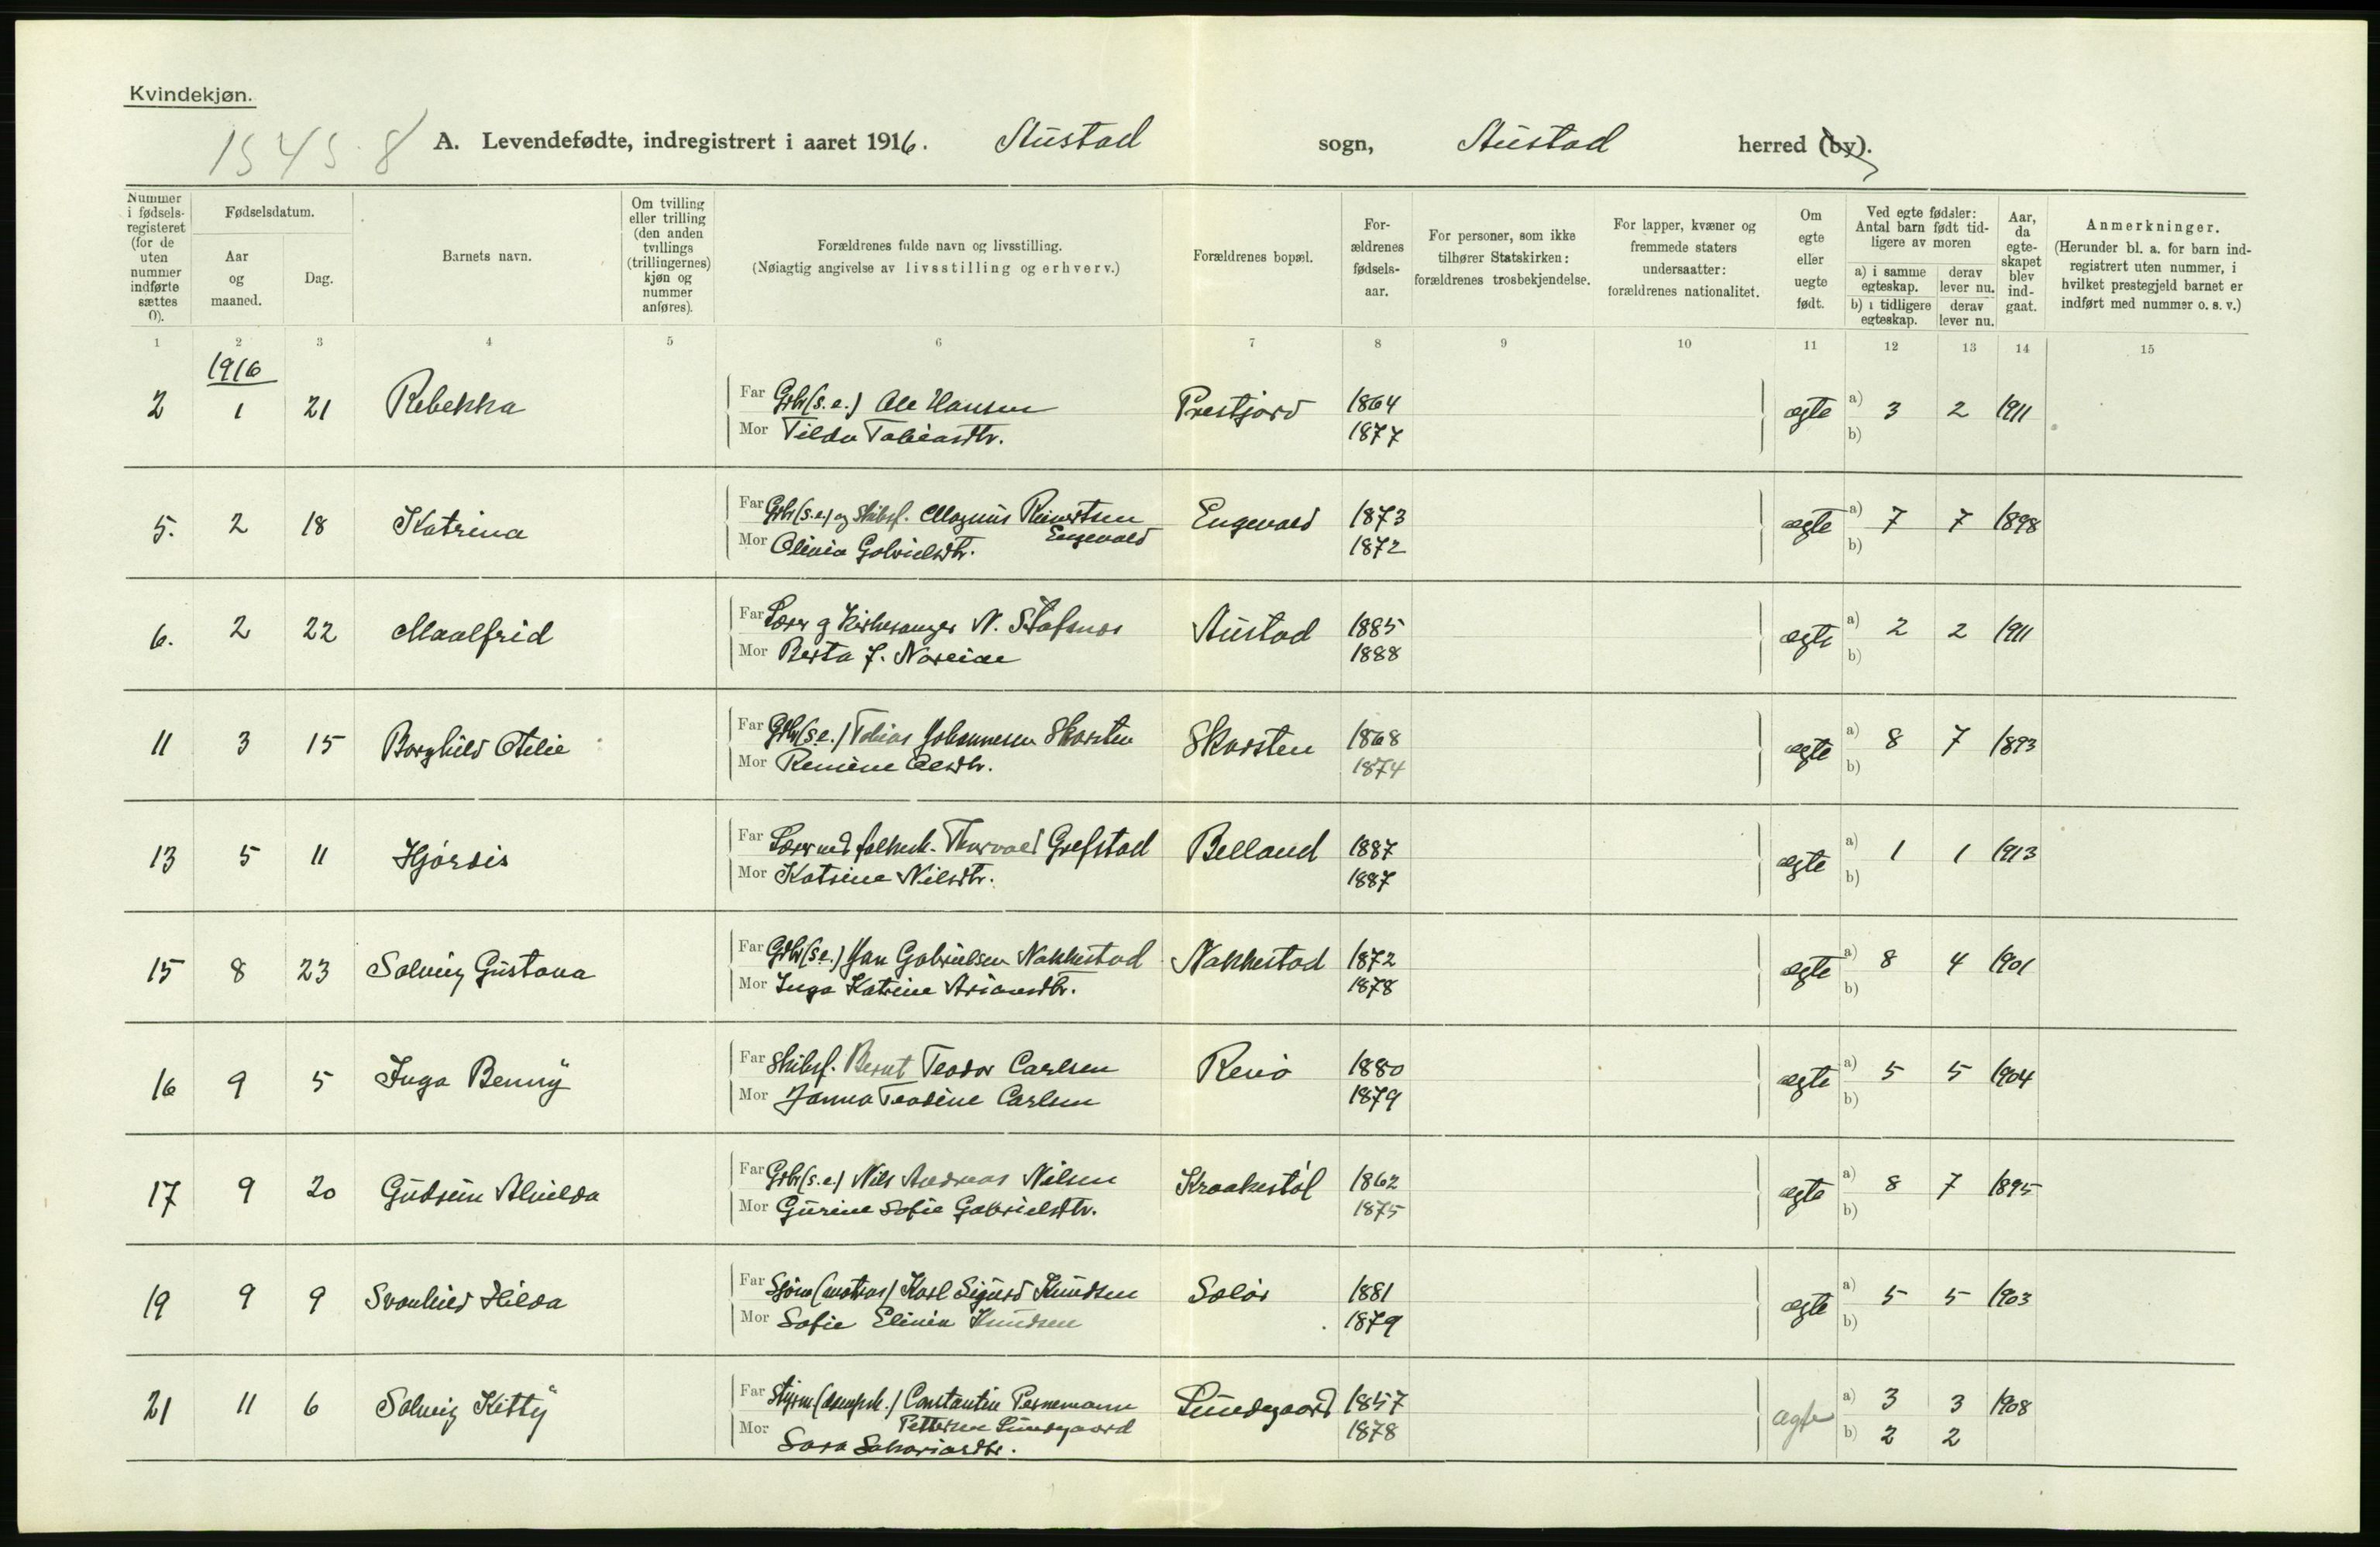 Kvindekjøn.
1545.8 A. Levendefødte, indregistrert i aaret 1916. Austad sogn, Austad herred (by).
Nummer i fødsels- registeret (for de uten nummer indførte sættes 0).
Fødselsdatum.
Aar og maaned.
Dag.
Barnets navn.
Om tvilling eller trilling (den anden tvillings (trillingernes) kjøn og nummer anføres).
Forældrenes fulde navn og livsstilling.
(Nøiagtig angivelse av livsstilling og erhverv.)
Forældrenes bopæl.
For- ældrenes fødsels- aar.
For personer, som ikke tilhører Statskirken: forældrenes trosbekjendelse.
For lapper, kvæner og fremmede staters undersaatter: forældrenes nationalitet.
Om egte eller uegte født.
Ved egte fødsler: Antal barn født tid- ligere av moren
a) i samme egteskap.
derav lever nu.
b) i tidligere egteskap.
derav lever nu.
Aar, da egte- skapet blev ind- gaat.
Anmerkninger.
(Herunder bl. a. for barn ind- registrert uten nummer, i hvilket prestegjeld barnet er indført med nummer o. s. v.)
1 2 3 4 5 6 7 8 9 10 11 12 13 14 15
1916
2 1 21 Rebekka Far Grbr (s.e.) Ole Hansen Prestjord 1864 egte a) 3 2 1911
Mor Tilda Tobiasdtr. 1877 b)
5. 2 18 Katrina Far Grbr (s.e.) og Skibsf. Magnus Reinertsen Engevold Engevold 1873 egte a) 7 7 1898
Mor Olivia Gabrielsdtr. 1872 b)
6. 2 22 Maalfrid Far Lærer og Kirkesanger N. Stafsnes Austad 1885 egte a) 2 2 1911
Mor Berta J. 1888 b)
11 3 15 Borghild Otelie Far Grbr (s.e.) Tobias Johannesen Skarsten Skarsten 1868 egte a) 8 7 1893
Mor Remine Olesdtr. 1874 b)
13 5 11 Hjørdis Far Lærer ved folkesk. Thorvald Grefstad Belland 1887 egte a) 1 1 1913
Mor Katrine Nilsdtr. 1887 b)
15 8 23 Solveig Gustava Far Grbr (s.e.) Jan Gabrielsen Nakkestad Nakkestad 1872 egte a) 8 4 1901
Mor Inga Katrine 1878 b)
16 9 5 Inga Benny Far Skibsf. Bernt Teodor Carlsen Renø 1880 egte a) 5 5 1904
Mor Janna Teodine Carlsen 1879 b)
17 9 20 Gudrun Alvilda Far Grbr (s.e.) Nils Andreas Nilsen Kraakestøl 1862 egte a) 8 7 1895
Mor Gurine Sofie Gabrielsdtr. 1875 b)
19 9 9 Svanhild Hilda Far Sjøm (matros) Karl Sigurd Knudsen Solør 1881 egte a) 5 5 1903
Mor Sofie Elinia Knudsen 1879 b)
21 11 6 Solveig Kitty Far Styrm (dampsk.) Constantin Pernemann Pettersen Lundegaard Lundegaard 1857 egte a) 3 3 1908
Mor Sara Sakariasdtr. 1878 b) 2 2